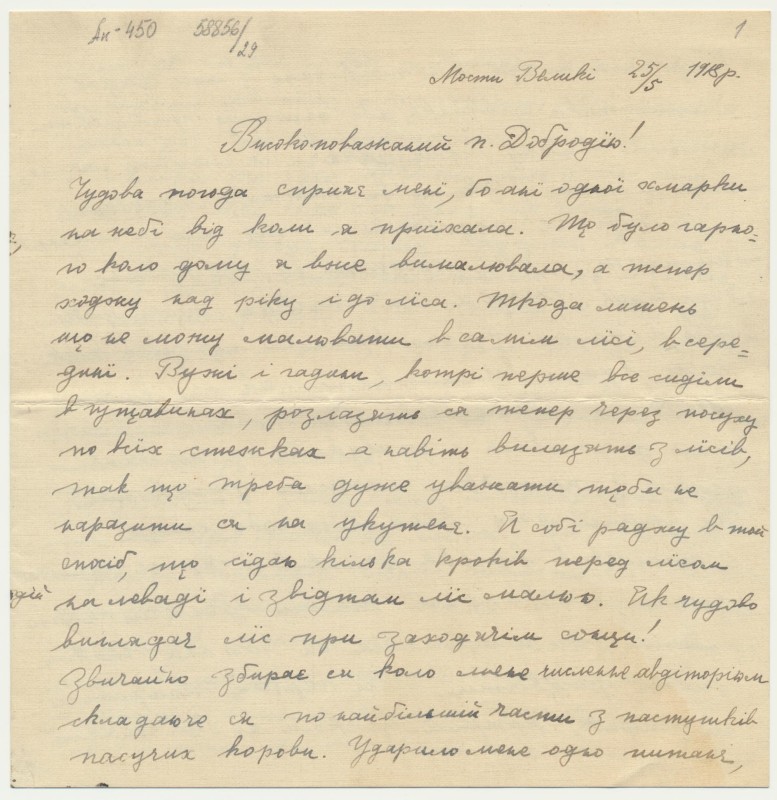 Ан-450 58856/29
1
Мости Великі 25/5 1918р.
Високоповажаний п. Добродїю!
Чудова погода сприяє менї, бо анї одної хмарки
на небі від коли я приїхала. Що було гарно=
го коло дому я вже вималювала, а тепер
ходжу над ріку і до лїса. Шкода лишень
що не можу малювати в самім лїсї, в сере=
динї. Вужі і гадини, котрі перше все сиділи
в гущавинах, розлазять ся тепер через посуху
по всїх стежках а навіть вилазять з лїсів,
так що треба дуже уважати щоби не
наразити ся на укушенє. Я собі раджу в той
спосіб, що сїдаю кілька кроків перед лїсом
на левадї і звідтам лїс малюю. Як чудово
виглядає лїс при заходячім сонци!
Звичайно збирає ся коло мене численне авдіторіюм
складаюче ся по найбільшій части з пастушків
пасучих корови. Ударило мене одно питанє,